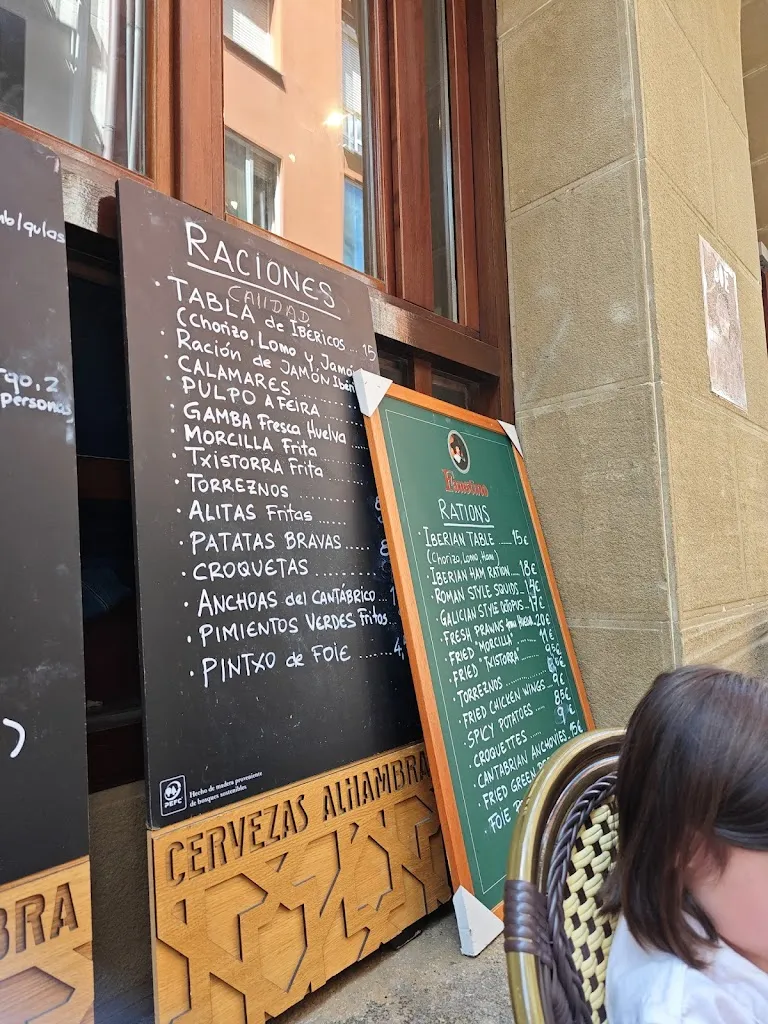 rgo, 2
personas
)
BRA
RACIONES
CALIDAD
• TABLA de IBERICOS ... 15
(Chorizo, Lomo y Jamón
• Ración de JAMÓN Ibéri
• CALAMARES ........
• PULPO A FEIRA ......
• GAMBA Fresca Huelva
• MORCILLA Frita ......
• TXISTORRA Frita ......
• TORREZNOS ........
• ALITAS Fritas ......
• PATATAS BRAVAS .....
• CROQUETAS ........
• ANCHOAS del CANTÁBRICO .. 1
• PIMIENTOS VERDES Fritos
• PINTXO de FOIE ...... 4,
PEFC
Hecho de madera proveniente
de bosques sostenibles
CERVEZAS ALHAMBRA
Faustino
RATIONS
• IBERIAN TABLE ..... 15€
(Chorizo, Lomo, Ham)
• IBERIAN HAM RATION ... 18€
• ROMAN STYLE SQUIDS .. 14€
• GALICIAN STYLE OCTOPUS .. 17€
• FRESH PRAWNS from HUELVA .. 20€
• FRIED "MORCILLA" ...... 11€
• FRIED "TXISTORRA" ....
• TORREZNOS ........
• FRIED CHICKEN WINGS .. 9€
• SPICY POTATOES ..... 8'5€
• CROQUETTES ........ 9€
• CANTABRIAN ANCHOVIES .. 15€
• FRIED GREEN
• FOIE